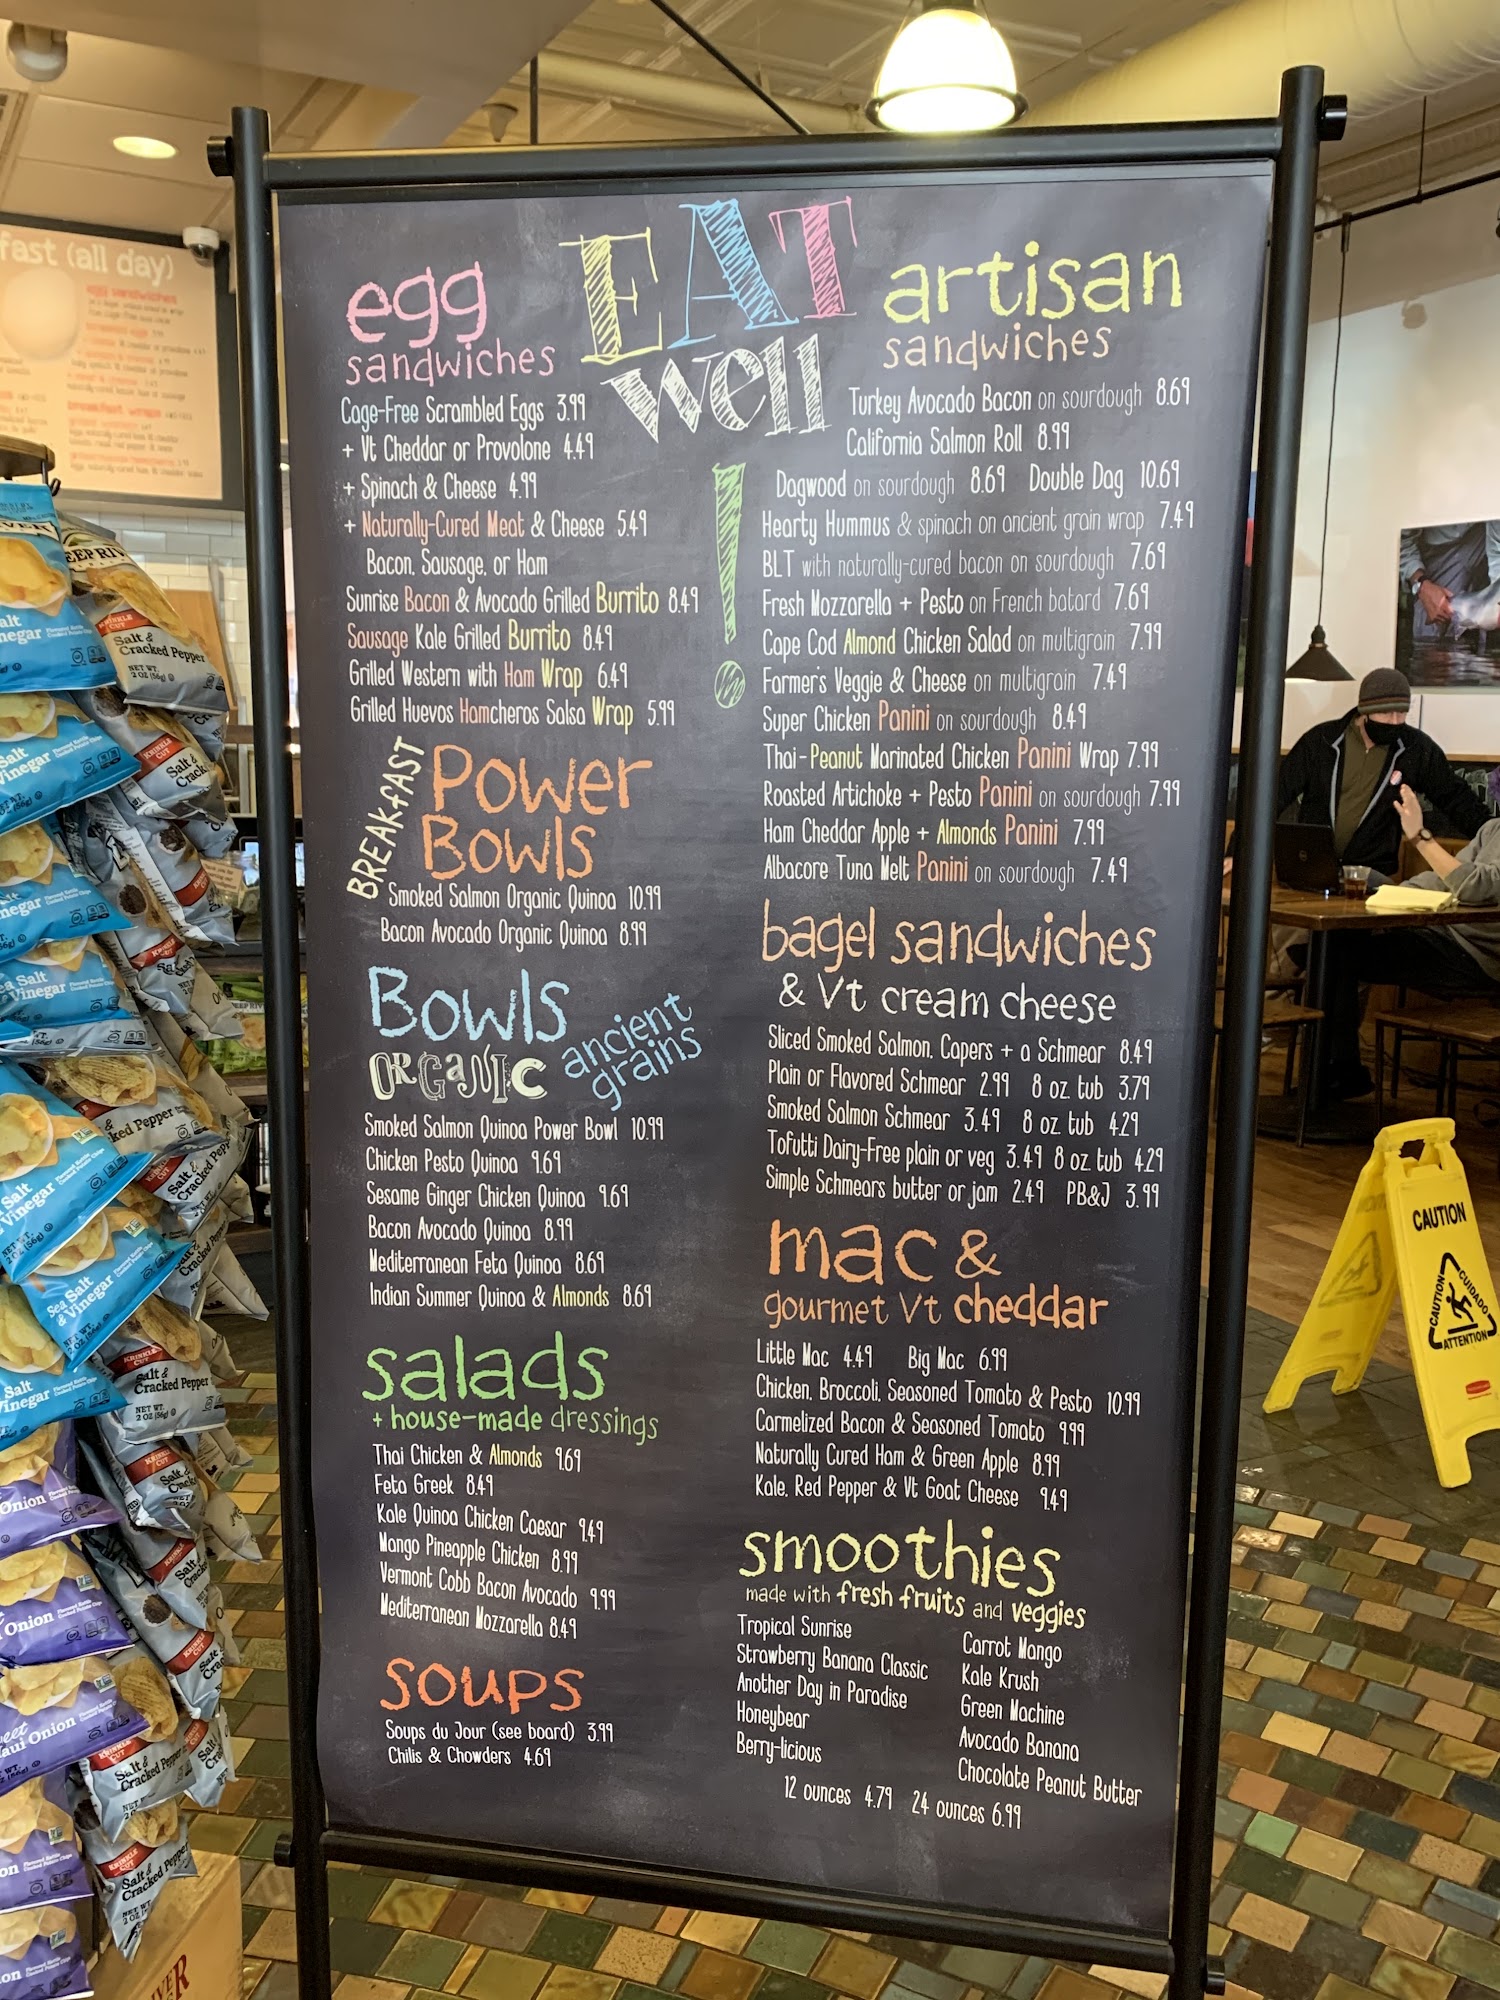 EAT
well
!
egg
sandwiches
Cage-Free Scrambled Eggs 3.99
+ Vt Cheddar or Provolone 4.49
+ Spinach & Cheese 4.99
+ Naturally-Cured Meat & Cheese 5.49
Bacon, Sausage, or Ham
Sunrise Bacon & Avocado Grilled Burrito 8.49
Sausage Kale Grilled Burrito 8.49
Grilled Western with Ham Wrap 6.49
Grilled Huevos Hamcheros Salsa Wrap 5.99
BREAKFAST
Power
Bowls
Smoked Salmon Organic Quinoa 10.99
Bacon Avocado Organic Quinoa 8.99
Bowls
ORGANIC
ancient
grains
Smoked Salmon Quinoa Power Bowl 10.99
Chicken Pesto Quinoa 9.69
Sesame Ginger Chicken Quinoa 9.69
Bacon Avocado Quinoa 8.99
Mediterranean Feta Quinoa 8.69
Indian Summer Quinoa & Almonds 8.69
salads
+ house-made dressings
Thai Chicken & Almonds 9.69
Feta Greek 8.49
Kale Quinoa Chicken Caesar 9.49
Mango Pineapple Chicken 8.99
Vermont Cobb Bacon Avocado 9.99
Mediterranean Mozzarella 8.49
soups
Soups du Jour (see board) 3.99
Chilis & Chowders 4.69
artisan
sandwiches
Turkey Avocado Bacon on sourdough 8.69
California Salmon Roll 8.99
Dagwood on sourdough 8.69 Double Dag 10.69
Hearty Hummus & spinach on ancient grain wrap 7.49
BLT with naturally-cured bacon on sourdough 7.69
Fresh Mozzarella + Pesto on French batard 7.69
Cape Cod Almond Chicken Salad on multigrain 7.99
Farmer's Veggie & Cheese on multigrain 7.49
Super Chicken Panini on sourdough 8.49
Thai-Peanut Marinated Chicken Panini Wrap 7.99
Roasted Artichoke + Pesto Panini on sourdough 7.99
Ham Cheddar Apple + Almonds Panini 7.99
Albacore Tuna Melt Panini on sourdough 7.49
bagel sandwiches
& Vt cream cheese
Sliced Smoked Salmon, Capers + a Schmear 8.49
Plain or Flavored Schmear 2.99 8 oz. tub 3.79
Smoked Salmon Schmear 3.49 8 oz. tub 4.29
Tofutti Dairy-Free plain or veg 3.49 8 oz. tub 4.29
Simple Schmears butter or jam 2.49 PB&J 3.99
mac &
gourmet Vt cheddar
Little Mac 4.49 Big Mac 6.99
Chicken, Broccoli, Seasoned Tomato & Pesto 10.99
Carmelized Bacon & Seasoned Tomato 9.99
Naturally Cured Ham & Green Apple 8.99
Kale, Red Pepper & Vt Goat Cheese 9.49
smoothies
made with fresh fruits and veggies
Tropical Sunrise
Strawberry Banana Classic
Another Day in Paradise
Honeybear
Berry-licious
Carrot Mango
Kale Krush
Green Machine
Avocado Banana
Chocolate Peanut Butter
12 ounces 4.79 24 ounces 6.99
fast (all day)
egg sandwiches
KRINKLE CUT
Salt &
Cracked Pepper
NET WT.
2 OZ (56g)
Sea Salt
& Vinegar
Maui Onion
CAUTION
CAUTION
CUIDADO
ATTENTION